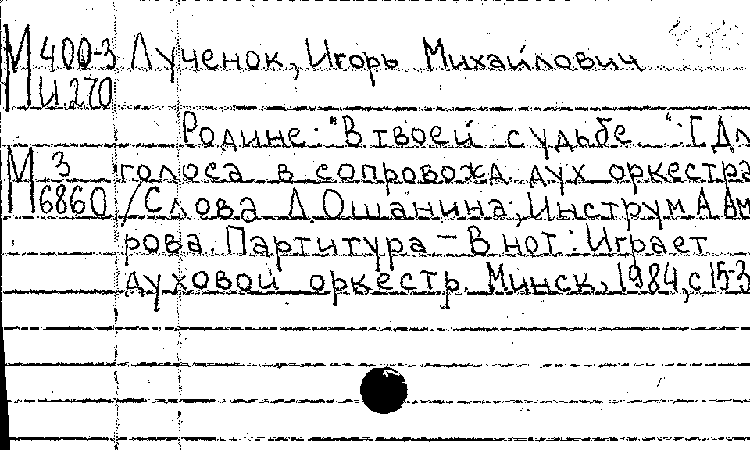 М 400-3 Лученок, Игорь Михайлович
И 270
Родине: "В твоей судьбе ": [Дл
М 3 голоса в сопровожд. дух оркестра
6860 / Слова Л. Ошанина; Инструм А Ам
рова. Партитура - В нот: Играет
духовой оркестр. Минск, 1984, с 15-3